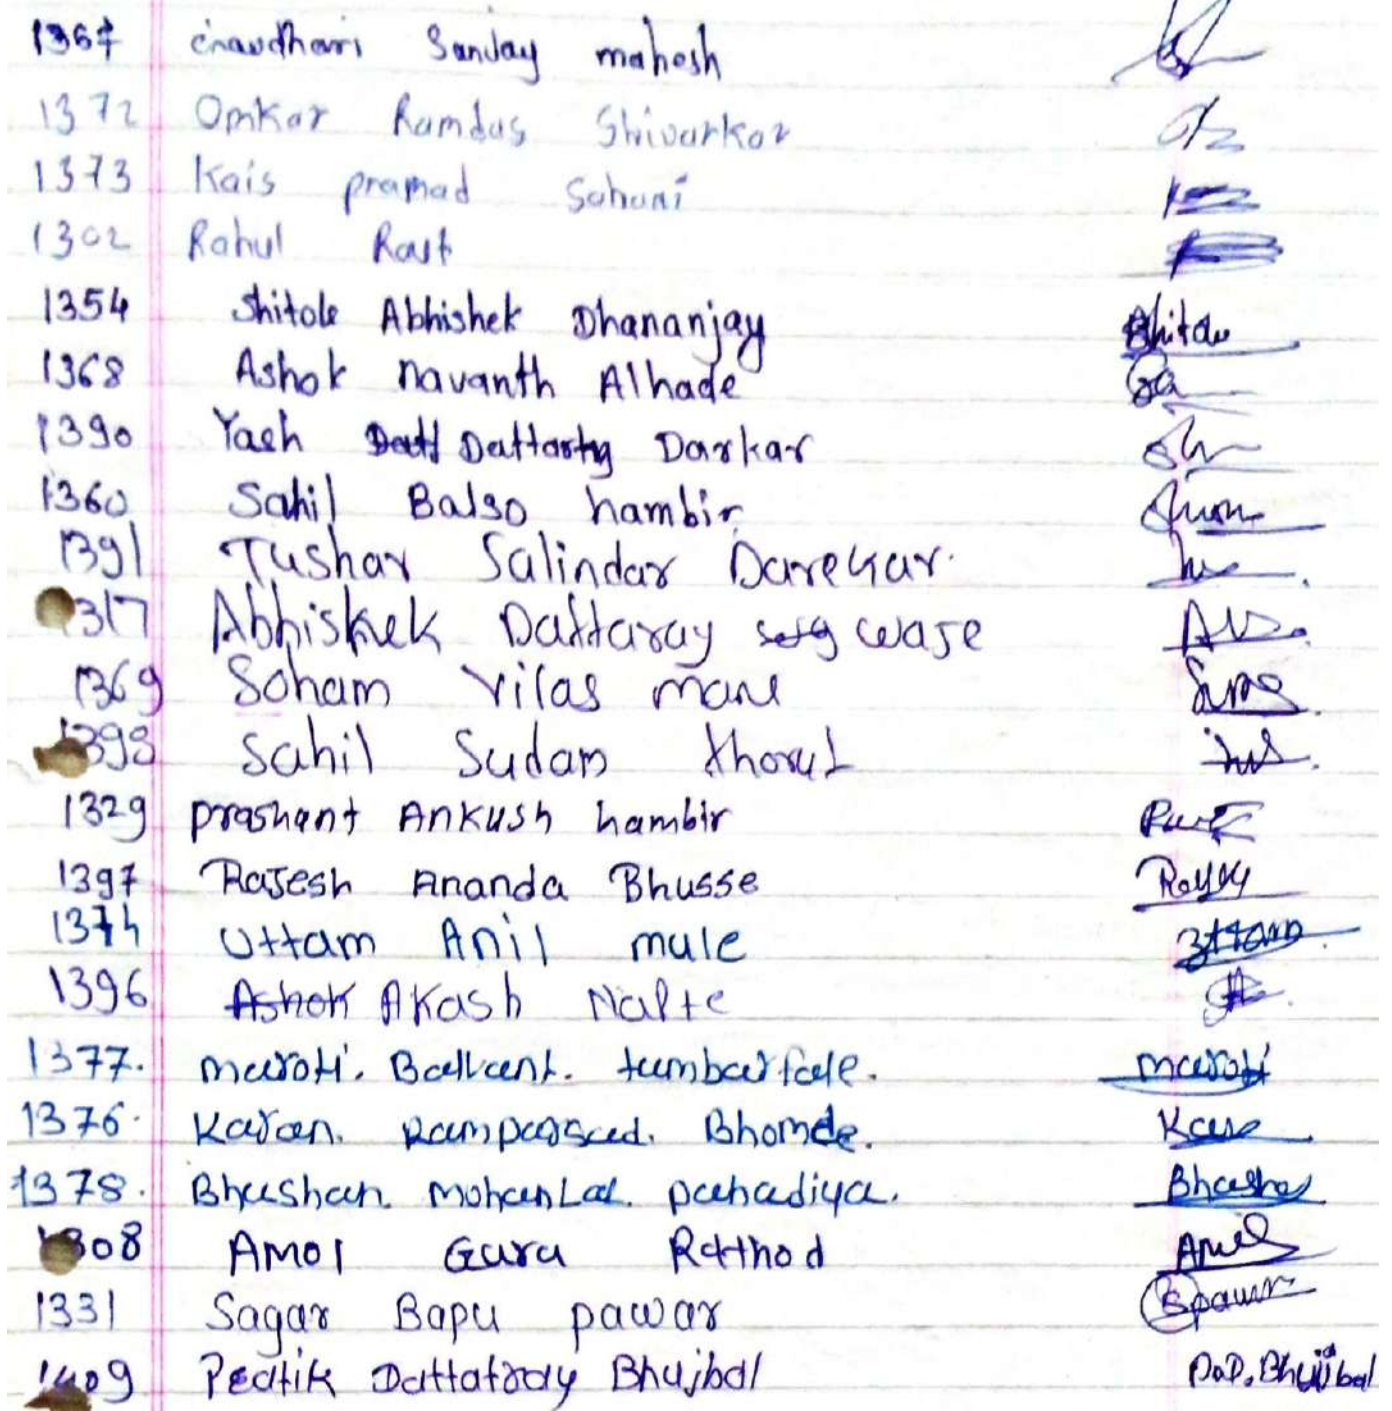 1367 chaudhari Sanjay mahesh
1372 Omkar Ramdas Shivarkar
1373 Kais pramad Sahani
1302 Rahul Raut
1354 Shitole Abhishek Dhananjay Shitole
1368 Ashok navanth Alhade
1390 Yash Dattartry Darkar
1360 Sahil Balso hambir
1391 Tushar Salindar Darekar.
1317 Abhishek Dattaray waje
1369 Soham Vilas mane
1398 Sahil Sudam thorat
1329 prashant Ankush hambir
1397 Rajesh Ananda Bhusse
1374 Uttam Anil mule
1396 Ashok Akash Napte
1377. maroti. Balvant. tumbarfale. maroti
1376. Karan. Ramparsad. Bhomde.
1378. Bhushan. Mohanlal. pahadiya. Bhushan
1308 Amol Gara Rathod
1331 Sagar Bapu pawar
1409 Pratik Dattatray Bhujbal P.D. Bhujbal